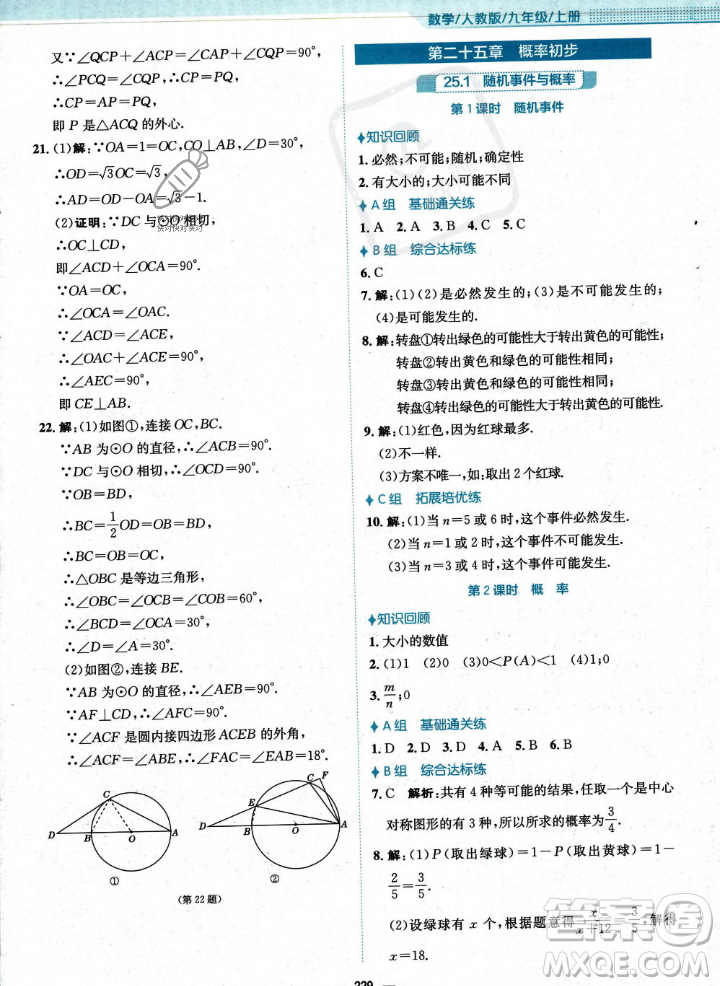 数学/人教版/九年级/上册
又∵∠QCP+∠ACP=∠AQC+∠CAP=90°,
∴∠PCQ=∠AQC=90°-∠CAP,
∴CP=AP=PQ,
即 P 是△ACQ 的外心.
21. (1)解:∵OA=1=OC,CO⊥AB,
∴OD=√3OC=√3,
∴AD=OD-OA=√3-1.
(2)证明:∵DC 与⊙O 相切,
∴OC⊥CD,
即∠ACD+∠OCA=90°.
∵OA=OC,
∴∠OCA=∠OAC.
∵∠ACD=∠ACE,
∴∠OAC+∠ACE=90°,
∴∠AEC=90°.
即 CE⊥AB.
22. 解:(1)如图①,连接 OC,BC.
∵AB 为⊙O 的直径,∴∠ACB=90°.
∵DC 与⊙O 相切,∴∠OCD=90°.
∵OB=BD,
∴BC=1/2 OD=OB=BD,
∴BC=OB=OC,
∴△OBC 是等边三角形,
∴∠OBC=∠OCB=∠COB=60°,
∴∠BCD=∠OCA=30°,
∴∠D=∠A=30°.
(2)如图②,连接 BE.
∵AB 为⊙O 的直径,∴∠AEB=90°.
∵AF⊥CD,∴∠AFC=90°.
∵∠ACF 是圆内接四边形 ACEB 的外角,
∴∠ACF=∠ABE,∴∠FAC=∠EAB=18°.
C
D B O A
①
C F
E
D B O A
②
(第 22 题)
第二十五章 概率初步
25.1 随机事件与概率
第 1 课时 随机事件
知识回顾
1. 必然;不可能;随机;确定性
2. 有大小的;大小有可能不同
A 组 基础通关练
1. A 2. A 3. B 4. B 5. A
B 组 综合达标练
6. C
7. 解:(1)(2)是必然发生的;(3)是不可能发生的;
(4)是可能发生的.
8. 解:转盘①转出绿色的可能性大于转出黄色的可能性;
转盘②转出黄色和绿色的可能性相同;
转盘③转出黄色和绿色的可能性相同;
转盘④转出绿色的可能性大于转出黄色的可能性.
9. 解:(1)红色,因为红球最多.
(2)不一样.
(3)方案不唯一,如:取出 2 个红球.
C 组 拓展培优练
10. 解:(1)当 n=5 或 6 时,这个事件必然发生.
(2)当 n=1 或 2 时,这个事件不可能发生.
(3)当 n=3 或 4 时,这个事件可能发生.
第 2 课时 概 率
知识回顾
1. 大小的数值
2. (1)1 (2)0 (3)0<P(A)<1 (4)1;0
3. m/n;0
A 组 基础通关练
1. D 2. D 3. C 4. D 5. A 6. D
B 组 综合达标练
7. C 解析:共有 4 种等可能的结果,任取一个是中心
对称图形的有 3 种,所以所求的概率为3/4.
8. 解:(1)P(取出绿球)=1-P(取出黄球)=1-
2/5=3/5.
(2)设绿球有 x 个,根据题意得x/(x+12)=3/5,解得
x=18.
229
MXQE.COM